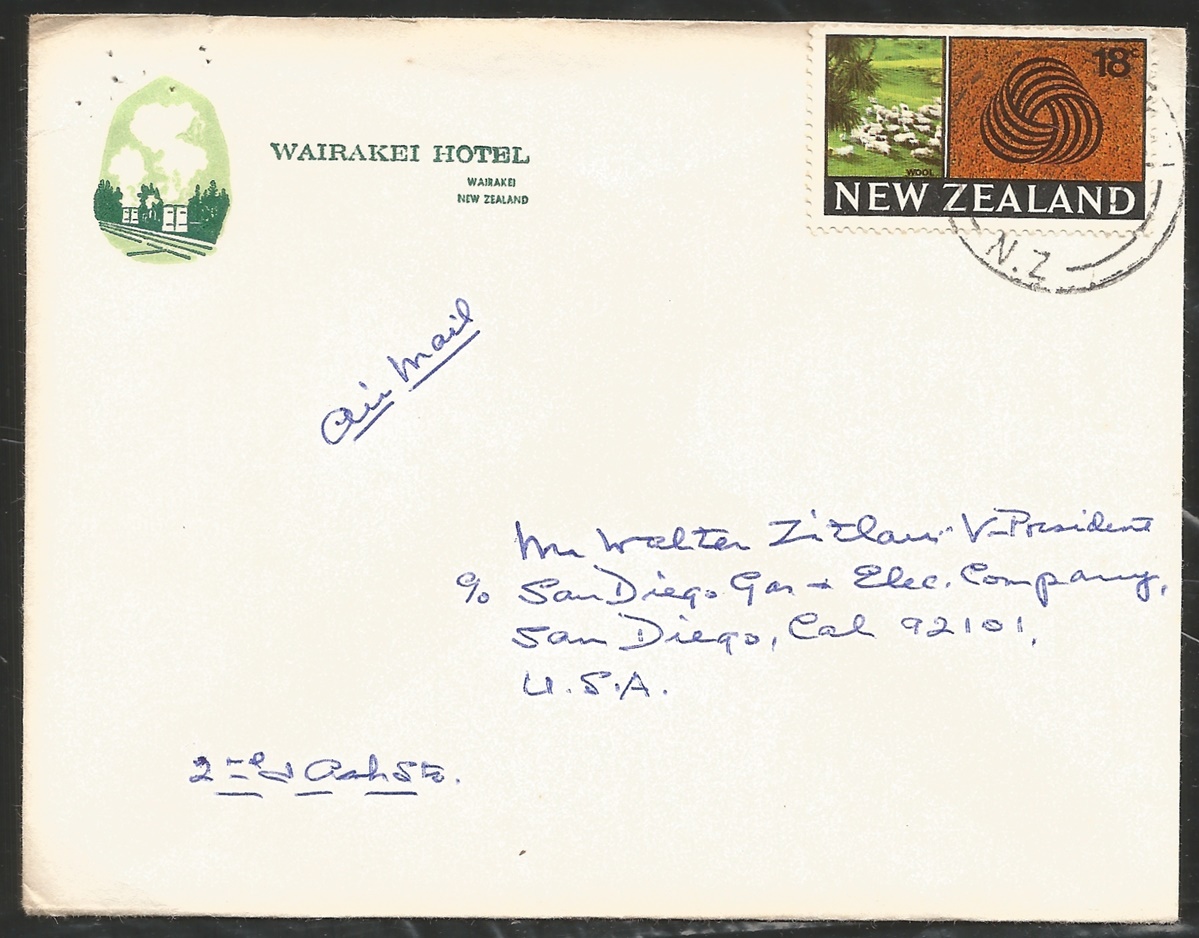 WAIRAKEI HOTEL
WAIRAKEI
NEW ZEALAND
18c
WOOL
NEW ZEALAND
N.Z
Air Mail
Mr Walter Zitlau V-President
c/o San Diego Gas + Elec. Company,
San Diego, Cal 92101,
U.S.A.
2nd Ash Sts.